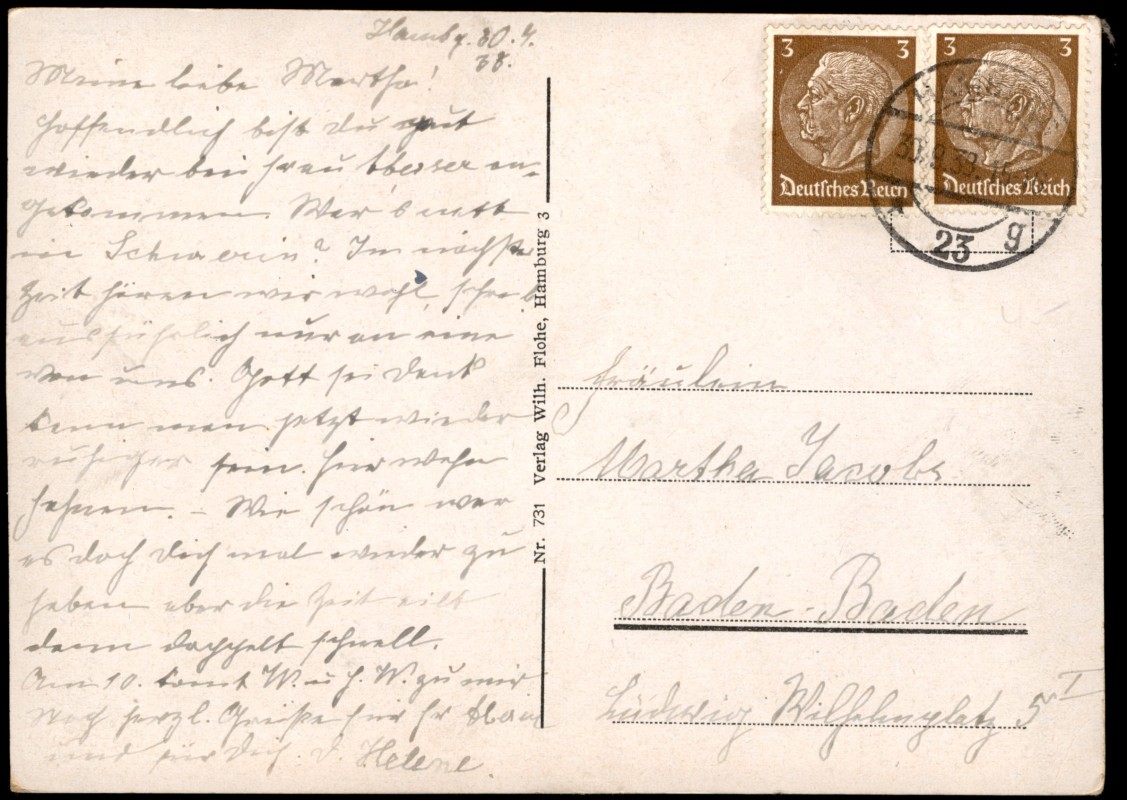 Hambg. 30.9.
38.
Meine liebe Martha!
Hoffendlich bist du gut
wieder bei Frau an-
gekommen. War's nett
in Schwerin? Im nächster
Zeit hören wir wohl, schreib
ausführlich nur an eine
von uns. Gott sei Dank
kann man jetzt wieder
ruhiger sein.
Wie schön war
es doch dich mal wieder zu
haben aber die Zeit eilt
dann doppelt schnell.
Am 10. komt W. u. H. W. zu mir
Noch herzl. Grüße für Fr
und für Dich. d. Helene.
Nr. 731 Verlag Wilh. Flohe, Hamburg 3
3 3
Deutsches Reich
3
Deutsches Reich
23 g
Fräulein
Martha Jacobs
Baden-Baden
Ludwig Wilhelmplatz 5 I